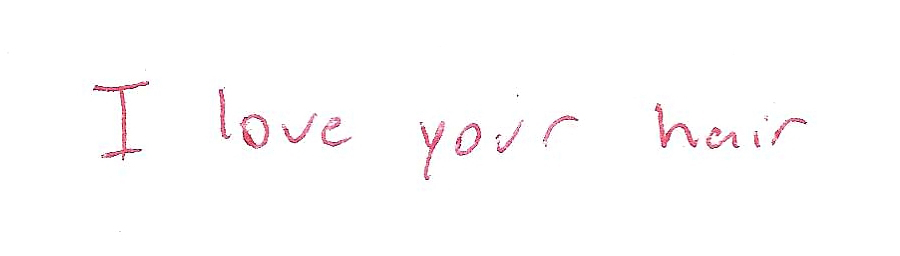 I love your hair